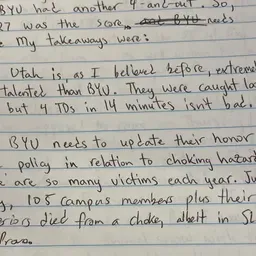 BYU had another 4-and-out. So,
27 was the score. and BYU needs
My takeaways were:
Utah is, as I believed before, extreme
talented than BYU. They were caught lo
but 4 TDs in 14 minutes isn't bad.
BYU needs to update their honor
policy in relation to choking hazard
are so many victims each year. Ju
105 campus members plus their
died from a choke, albeit in SL
Provo.